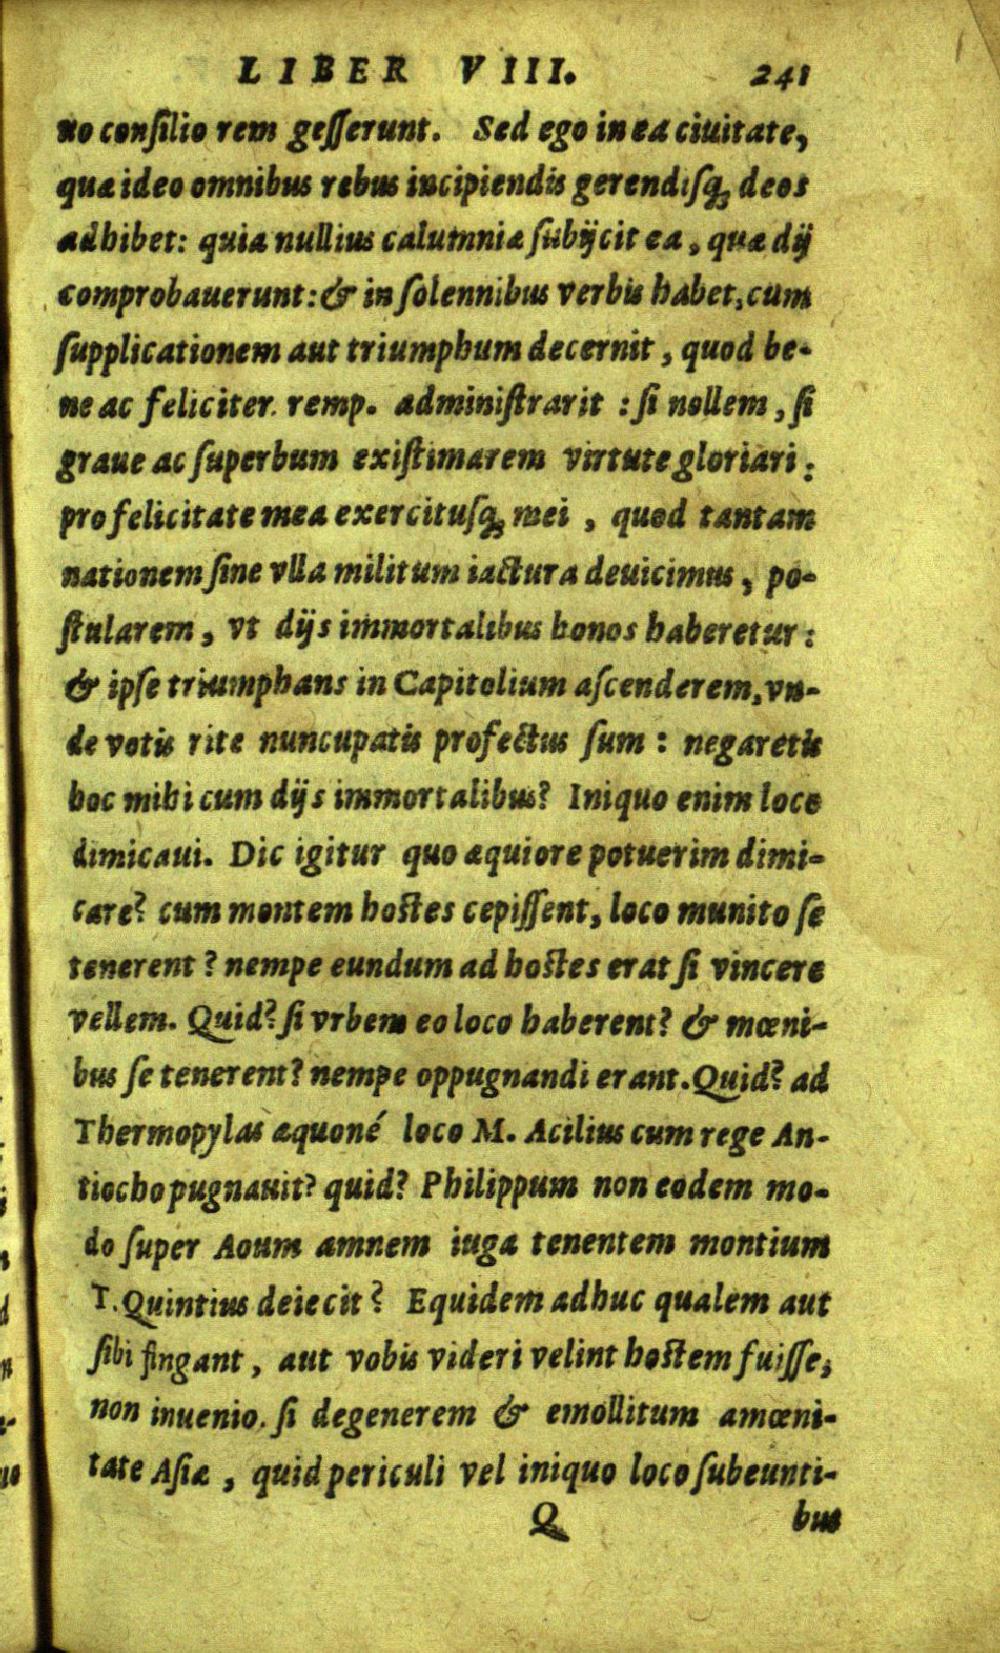 LIBER VIII. 241
no consilio rem gesserunt. Sed ego in ea ciuitate,
quæ ideo omnibus rebus incipiendis gerendisq́; deos
adhibet: quia nullius calumniæ subijcit ea, quæ dij
comprobauerunt: & in solennibus verbis habet, cum
supplicationem aut triumphum decernit, quod be-
ne ac feliciter remp. administrarit : si nollem, si
graue ac superbum existimarem virtute gloriari:
pro felicitate mea exercitusq́; mei, quod tantam
nationem sine vlla militum iactura deuicimus, po-
stularem, vt dijs immortalibus honos haberetur:
& ipse triumphans in Capitolium ascenderem, vn-
de votis rite nuncupatis profectus sum : negaretis
hoc mihi cum dijs immortalibus? Iniquo enim loco
dimicaui. Dic igitur quo æquiore potuerim dimi-
care? cum montem hostes cepissent, loco munito se
tenerent? nempe eundum ad hostes erat si vincere
vellem. Quid? si vrbem eo loco haberent? & mœni-
bus se tenerent? nempe oppugnandi erant. Quid? ad
Thermopylas æquoné loco M. Acilius cum rege An-
tiocho pugnauit? quid? Philippum non eodem mo-
do super Aoum amnem iuga tenentem montium
T. Quintius deiecit? Equidem adhuc qualem aut
sibi fingant, aut vobis videri velint hostem fuisse,
non inuenio. si degenerem & emollitum amœni-
tate Asiæ, quid periculi vel iniquo loco subeunti-
Q bus